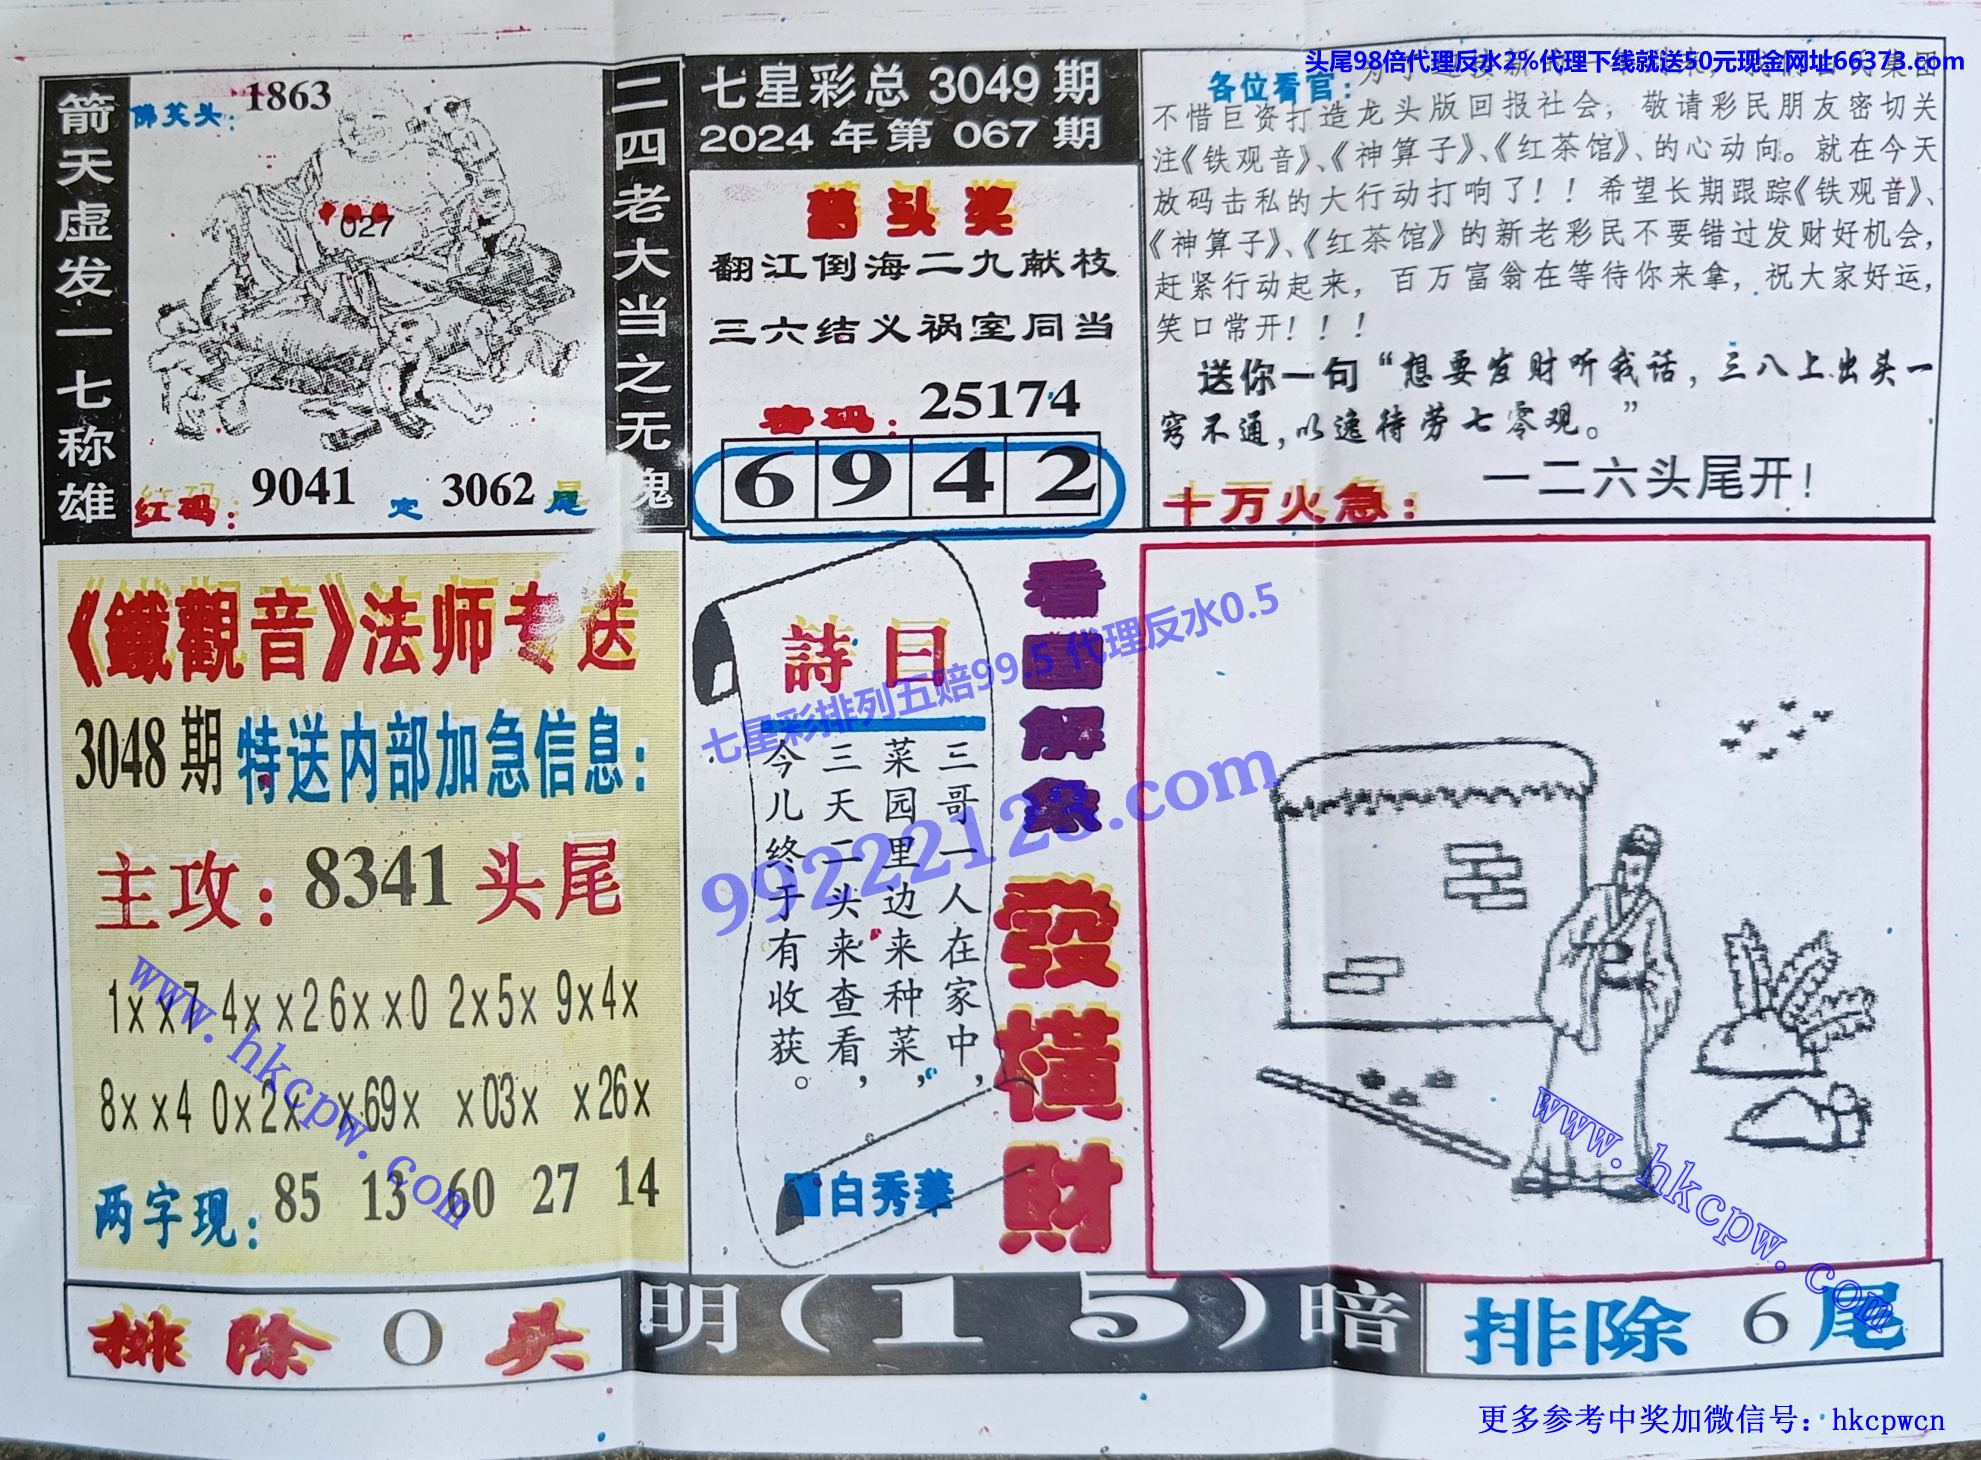 头尾98倍代理反水2%代理下线就送50元现金网址66373.com
箭天虚发一七称雄
佛笑头：
1863
027
红码：
9041
定
3062
尾
二四老大当之无鬼
七星彩总 3049 期
2024 年第 067 期
头奖
翻江倒海二九献枝
三六结义祸室同当
密码：
25174
6 9 4 2
各位看官：
不惜巨资打造龙头版回报社会，敬请彩民朋友密切关
注《铁观音》、《神算子》、《红茶馆》、的心动向。就在今天
放码击私的大行动打响了！！希望长期跟踪《铁观音》、
《神算子》、《红茶馆》的新老彩民不要错过发财好机会，
赶紧行动起来，百万富翁在等待你来拿，祝大家好运，
笑口常开！！！
送你一句“想要发财听我话，三八上出头一
窍不通，以逸待劳七零观。”
十万火急：
一二六头尾开！
《鐵觀音》法师专送
3048 期
特送内部加急信息：
主攻：8341头尾
1××7 4××2 6××0 2×5× 9×4×
8××4 0×2× ×69× ×03× ×26×
两字现：
85 13 60 27 14
詩曰
三哥一人在家中，
菜园里边来种菜，
三天二头来查看，
今儿终于有收获。
白秀華
看圖解象
發橫財
七星彩排列五赔99.5 代理反水0.5
99222123.com
www.hkcpw.com
www.hkcpw.com
排除 0 头
明(1 5)暗
排除 6 尾
更多参考中奖加微信号：hkcpwcn